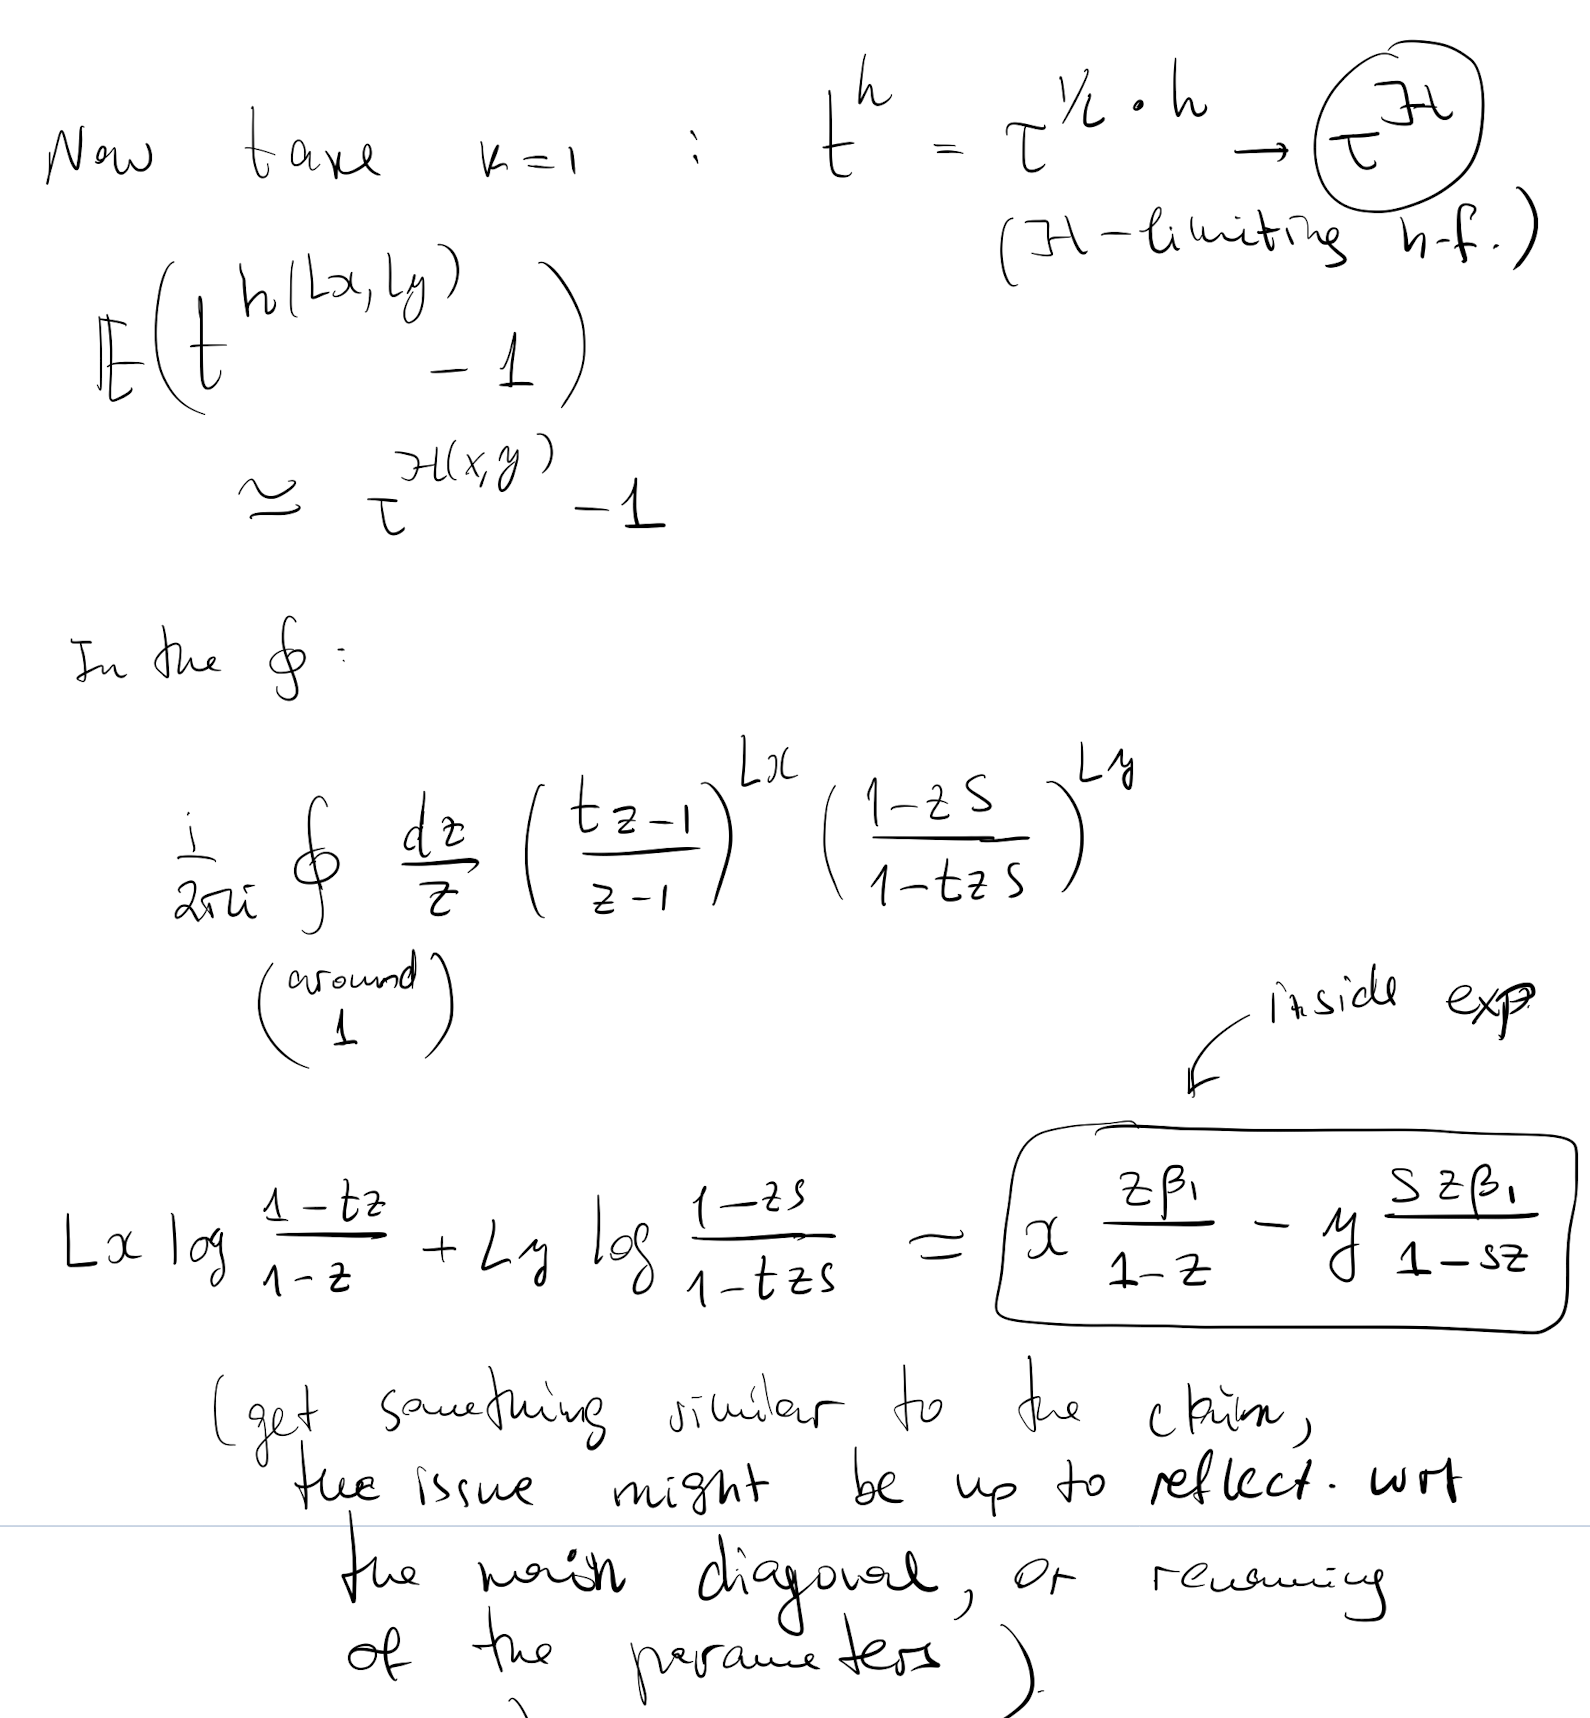 Now take k=1 : t^h = τ^{1/L · h} → τ^ℋ
(ℋ-limiting h-f.)
𝔼(t^{h(Lx, Ly)} - 1)
≃ τ^{ℋ(x,y)} - 1
In the ∮ :
1/2πi ∮ dz/z (tz-1 / z-1)^{Lx} (1-zs / 1-tzs)^{Ly}
(around 1)
inside exp
Lx log (1-tz / 1-z) + Ly log (1-zs / 1-tzs) = x zβ₁ / 1-z - y szβ₁ / 1-sz
(get something similar to the claim,
the issue might be up to reflect. wrt
the main diagonal, or renaming
of the parameters)